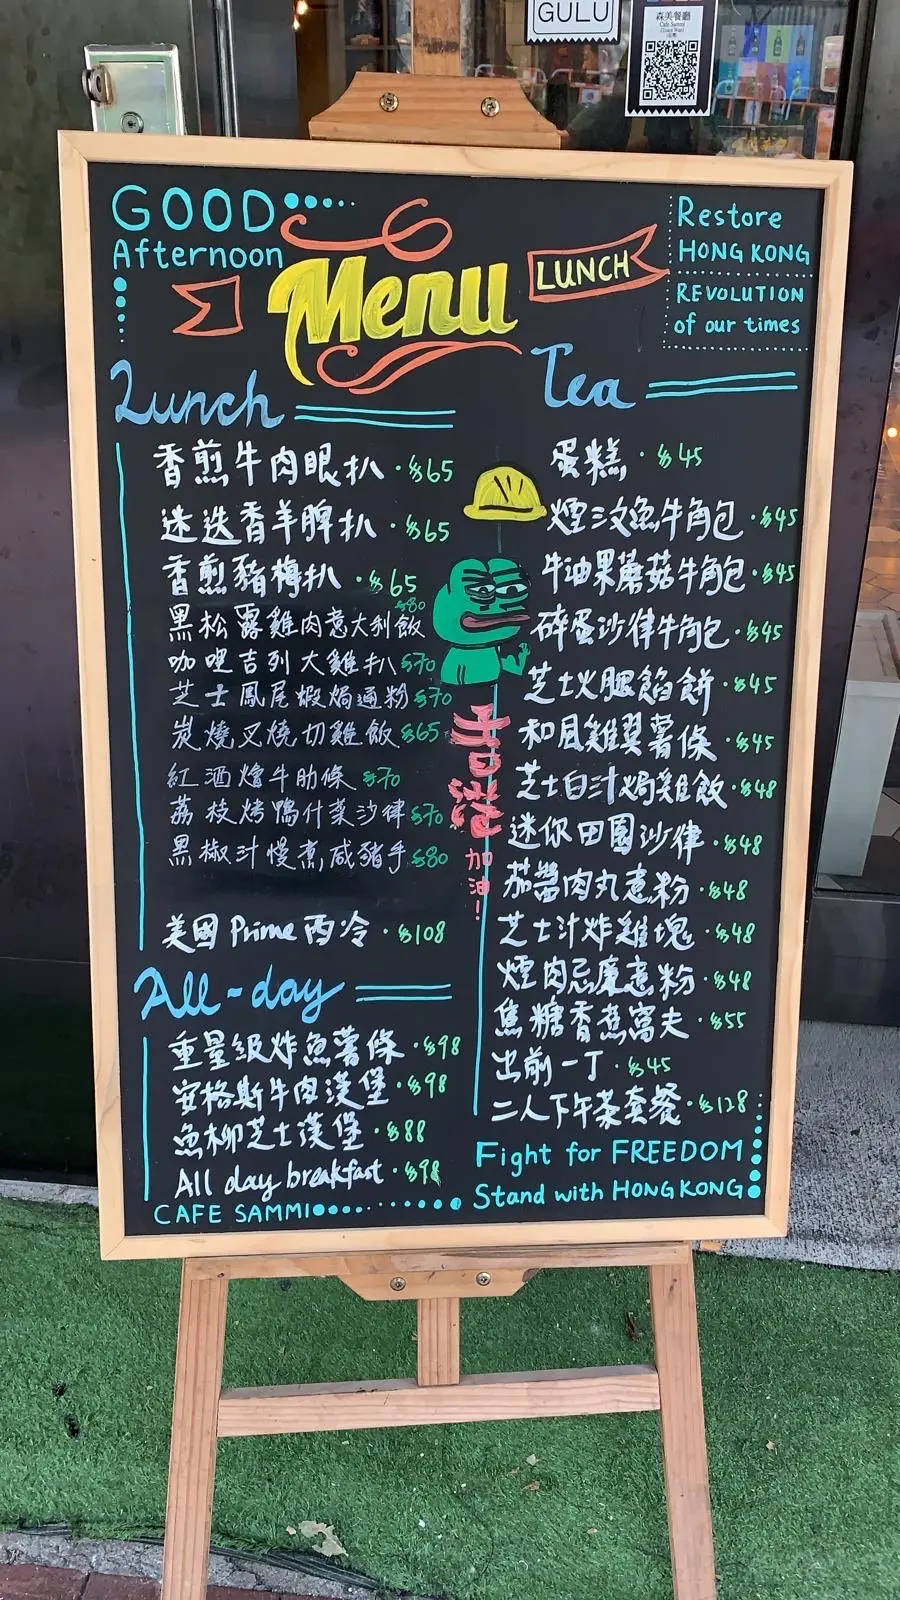 GULU
森美餐廳
Cafe Sammi
GOOD
Afternoon
Menu
LUNCH
Restore
HONG KONG
REVOLUTION
of our times
Lunch
香煎牛肉眼扒 · $65
迷迭香羊脾扒 · $65
香煎豬梅扒 · $65
黑松露雞肉意大利飯 $80
咖喱吉列大雞扒 $70
芝士鳳尾蝦焗通粉 $70
炭燒叉燒切雞飯 $65
紅酒燴牛肋條 $70
荔枝烤鴨什菜沙律 $70
黑椒汁慢煮咸豬手 $80
美國 Prime 西冷 · $108
All-day
重量級炸魚薯條 · $98
安格斯牛肉漢堡 · $98
魚柳芝士漢堡 · $88
All day breakfast · $98
CAFE SAMMI
香港
加油!
Tea
蛋糕 · $45
煙三文魚牛角包 · $45
牛油果蘑菇牛角包 · $45
碎蛋沙律牛角包 · $45
芝士火腿餡餅 · $45
和風雞翼薯條 · $45
芝士白汁焗雞飯 · $48
迷你田園沙律 · $48
茄醬肉丸意粉 · $48
芝士汁炸雞塊 · $48
煙肉忌廉意粉 · $48
焦糖香蕉窩夫 · $55
出前一丁 · $45
二人下午茶套餐 · $128
Fight for FREEDOM
Stand with HONG KONG